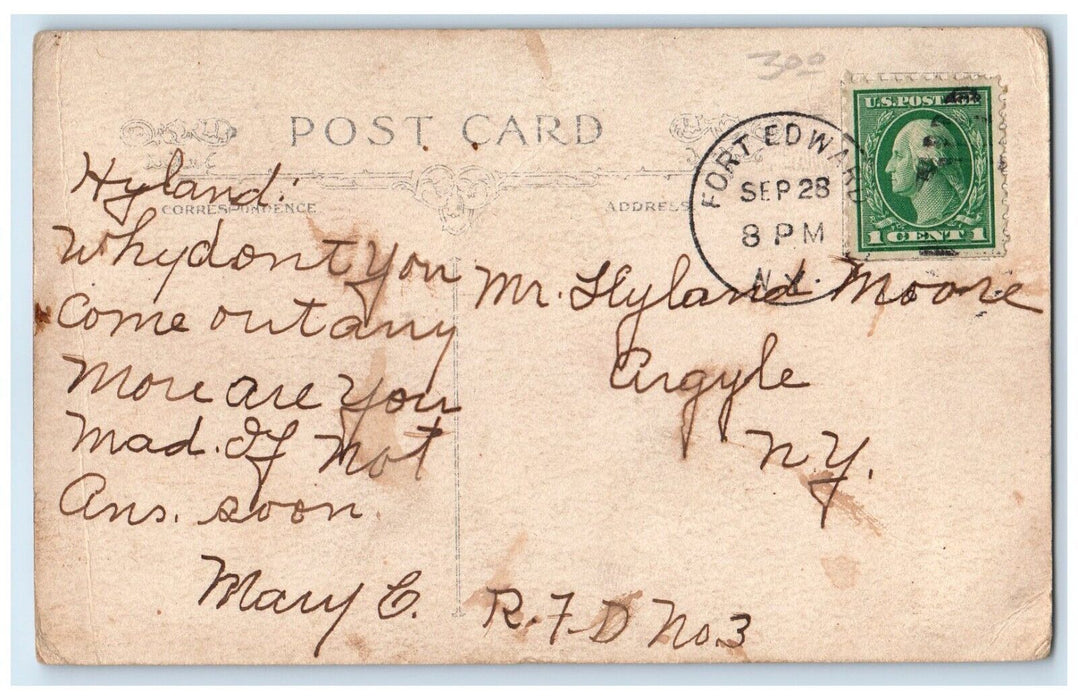 300
POST CARD
CORRESPONDENCE
ADDRESS
U.S. POSTAGE
1 CENT 1
FORT EDWARD
SEP 28
8 PM
N.Y.
Hyland:
Why dont You
Come out any
More are You
Mad. If Not
Ans. soon.
Mary C.
Mr. Hyland Moore
Argyle
N.Y.
R.F.D No. 3